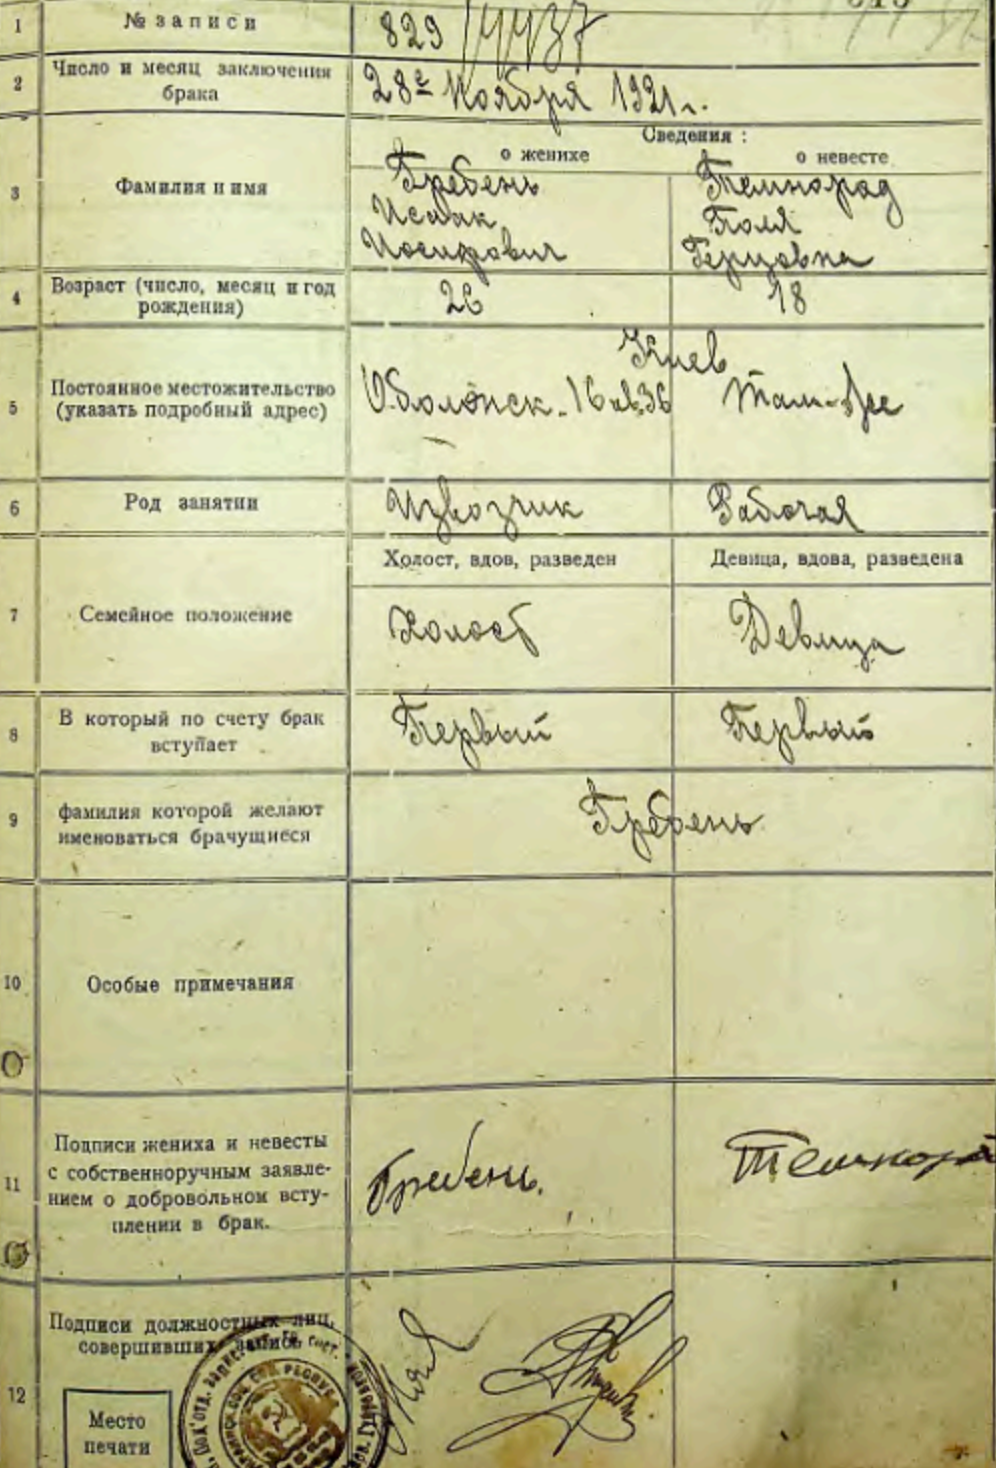 1 № записи 829
2 Число и месяц заключения
брака
28ᵍᵒ Ноября 1921 г.
Сведения :
о женихе о невесте
3 Фамилия и имя
Гребень
Исаак
Иосифович
Темноград
Поля
Герцовна
4 Возраст (число, месяц и год
рождения)
26 18
5 Постоянное местожительство
(указать подробный адрес)
Киев
Оболонск. 16 кв. 36 Там-же
6 Род занятии Извозчик Рабочая
Холост, вдов, разведен Девица, вдова, разведена
7 Семейное положение Холост Девица
8 В который по счету брак
вступает
Первый Первый
9 фамилия которой желают
именоваться брачущиеся
Гребень
10 Особые примечания
11 Подписи жениха и невесты
с собственноручным заявле-
нием о добровольном всту-
плении в брак.
Гребень. Темногра
12 Подписи должностных лиц,
совершивших запись
Место
печати